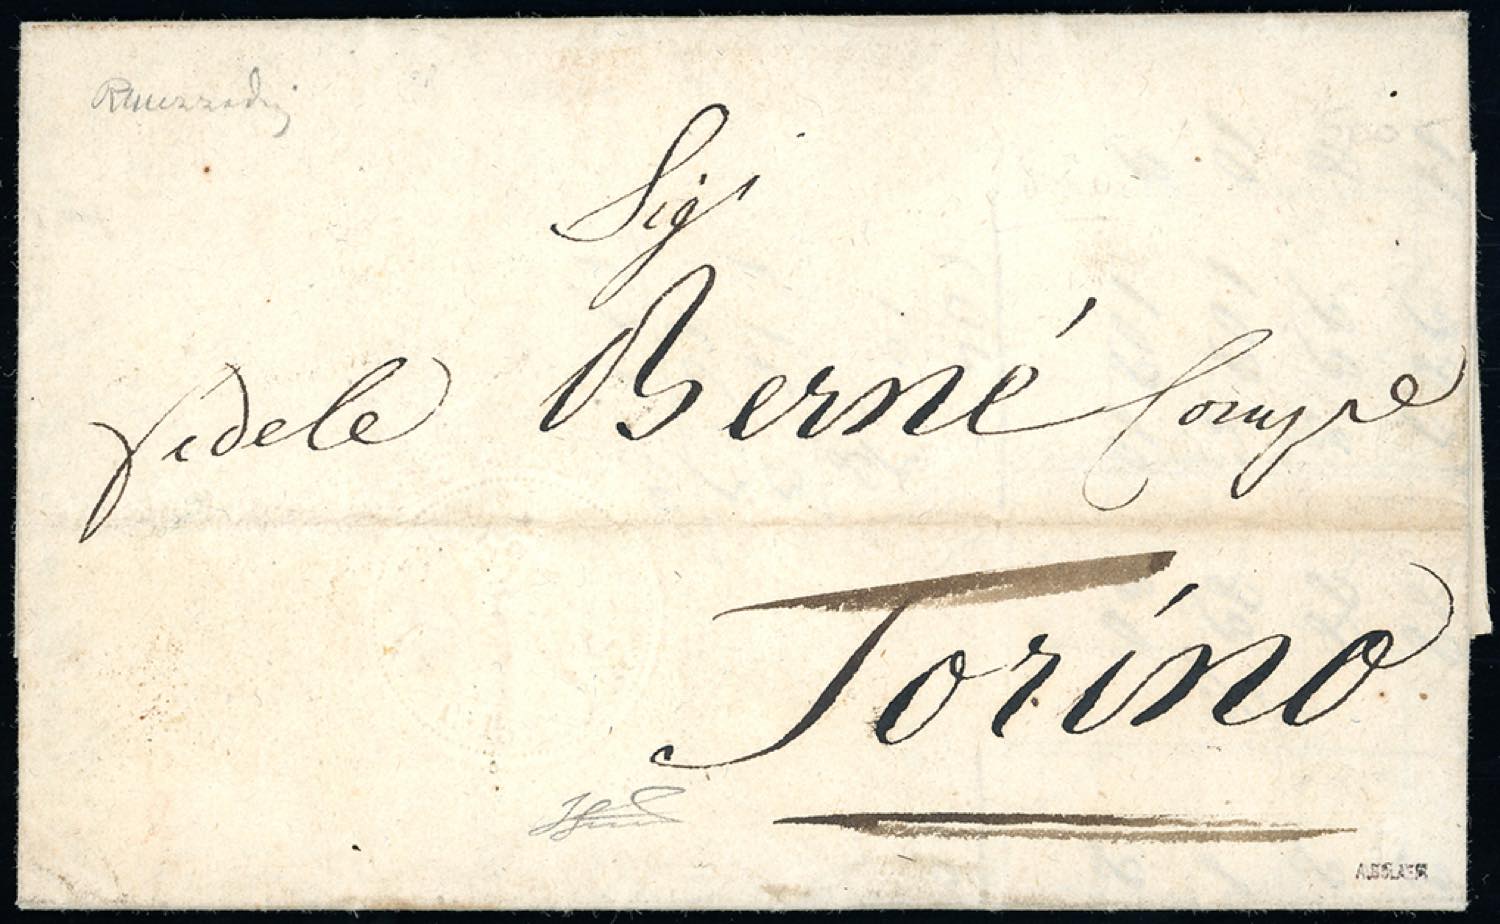 RMezzadri
Sigi
fidele Berné Compe
Torino
A.BOLAFFI